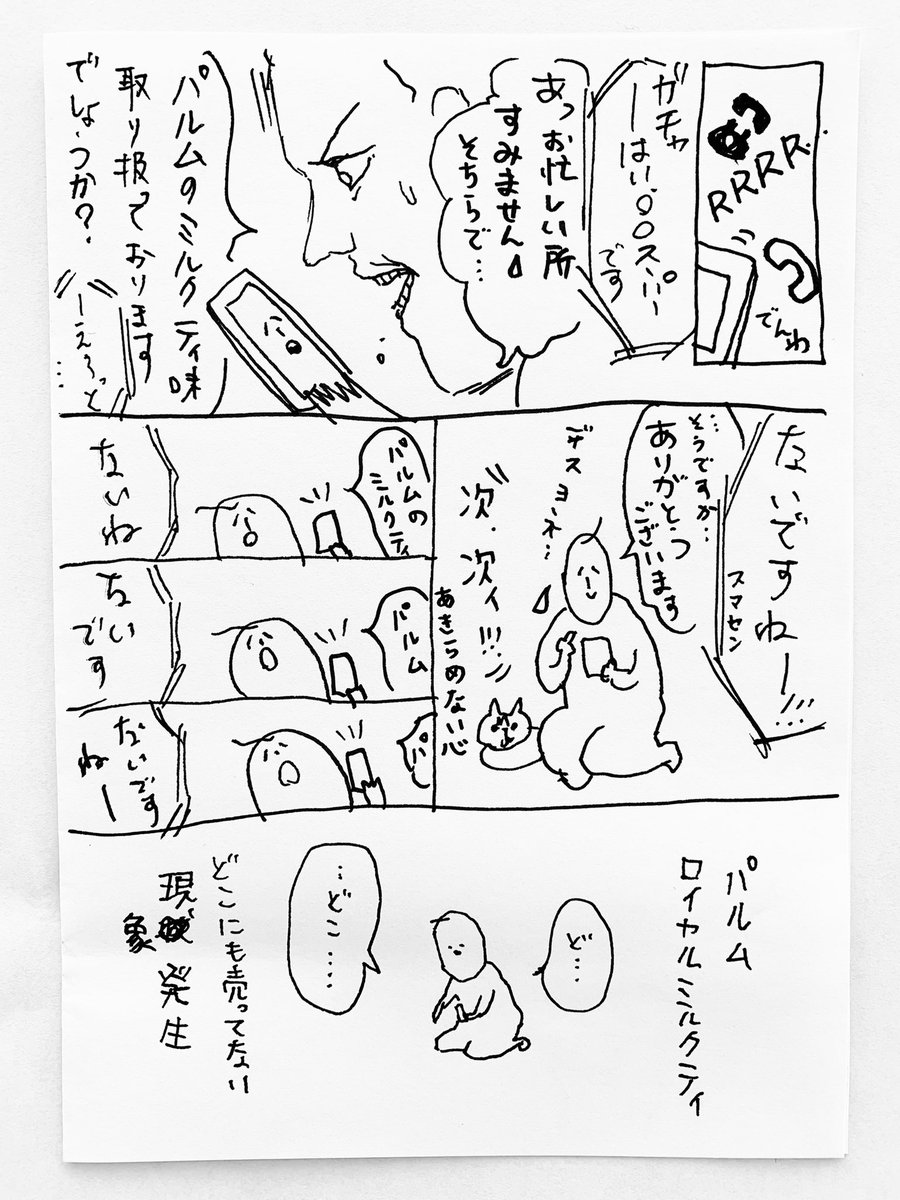 RRRR..
でんわ
ガチャ
ーはい。〇〇スーパー
です
あっお忙しい所
すみません
そちらで…
パルムのミルクティ味
取り扱っております
でしょうか?
ーえ〜っと
…
ないですねー…
スマセン
…そうですか…
ありがとう
ございます
デスヨーネ…
次、次ィ!!!
あきらめない心
パルムの
ミルクティ
ないね
パルム
ない
です
パ
ないです
ねー
パルム
ロイヤルミルクティ
ど…
…どこ……
どこにも売ってない
現象発生